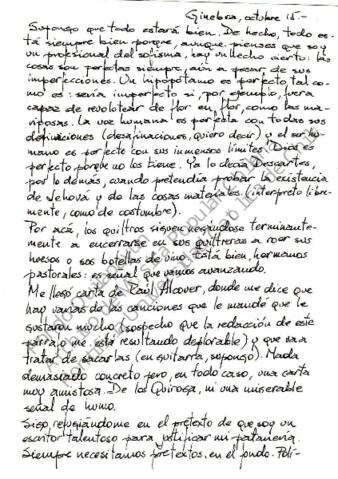 Ginebra, octubre 15.-
Supongo que todo estará bien. De hecho, todo es-
tá siempre bien porque, aunque pienses que soy
un profesional del sofisma, hay un hecho cierto: las
cosas son perfectas siempre, aún a pesar de sus
imperfecciones. Un hipopótamo es perfecto tal co-
mo es: sería imperfecto si, por ejemplo, fuera
capaz de revolotear de flor en flor, como las ma-
riposas. La voz humana es perfecta con todas sus
definaciones (desafinaciones, quiero decir) y el ser hu-
mano es perfecto con sus inmensos límites. Dios es
perfecto porque no los tiene. Ya lo decía Descartes,
por lo demás, cuando pretendía probar la existencia
de Jehová y de las cosas materiales (interpreto libre-
mente, como de costumbre).
Por acá, los quiltros siguen negándose terminante-
mente a encerrarse en sus quiltreras a roer sus
huesos o sus botellas de vino. Está bien, hermanos
pastorales: es señal que vamos avanzando.
Me llegó carta de Raúl Alcover, donde me dice que
hay varias de las canciones que le mandé que le
gustaron mucho (sospecho que la redacción de este
párrafo me está resultando deplorable) y que va a
tratar de sacarlas (en guitarra, supongo). Nada
demasiado concreto pero, en todo caso, una carta
muy amistosa. De los Quiroga, ni una miserable
señal de humo.
Sigo refugiándome en el pretexto de que soy un
escritor talentoso para justificar mi patanería.
Siempre necesitamos pretextos, en el fondo. Feli-